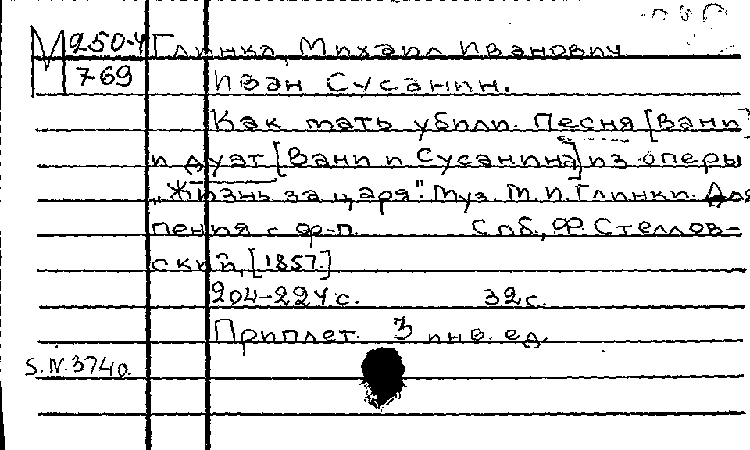 М 250-4 Глинка, Михаил Иванович
7-69 Иван Сусанин.
Как мать убили. Песня [Вани]
и дуэт [Вани и Сусанина] из оперы
„Жизнь за царя". Муз. М. И. Глинки. Для
пения с ф-п. Спб., Ф. Стеллов-
ский, [1857.]
204-224 с. 32 с.
Приплет. 3 инв. ед.
S. N. 3740.